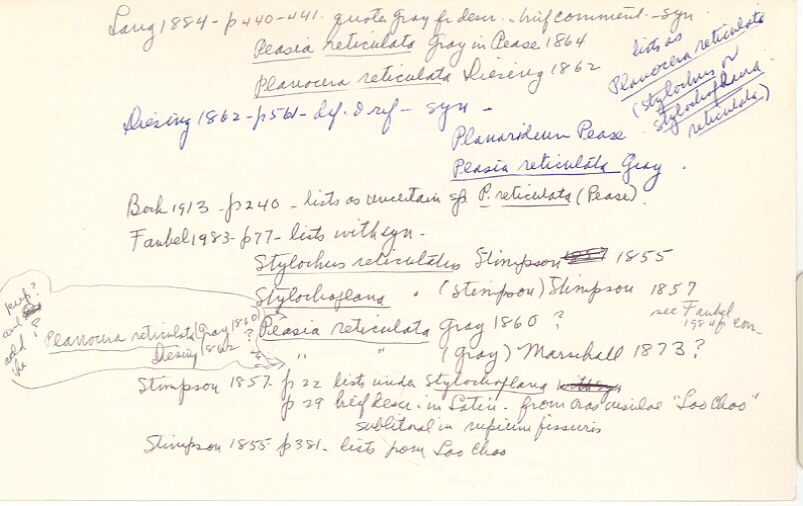 Lang 1884 - p440-441. quotes Gray fr descr. - brief comment. - syn
Peasia reticulata Gray in Pease 1864
Planocera reticulata Diesing 1862
lists as
Planocera reticulata
(Stylochus or
Stylochoplana
reticulata)
Diesing 1862 - p561 - def. & ref - syn -
Planarideum Pease
Peasia reticulata Gray.
Bock 1913 - p240 - lists as uncertain sp P. reticulata (Pease).
Faubel 1983 - p77 - lists with syn -
Stylochus reticulatus Stimpson 1855
Stylochoplana " (Stimpson) Stimpson 1857
Peasia reticulata Gray 1860 ?
see Faubel
1984 fr con-
" " (Gray) Marschall 1873?
keep?
and
add ?
the
Planocera reticulata (Gray 1860)
Diesing 1862 ?
Stimpson 1857 - p22 lists under Stylochoplana
p29 brief descr. in Latin - from oras insulae "Loo Choo"
sublitoral in rupium fissuris
Stimpson 1855 - p381 - lists from Loo Choo